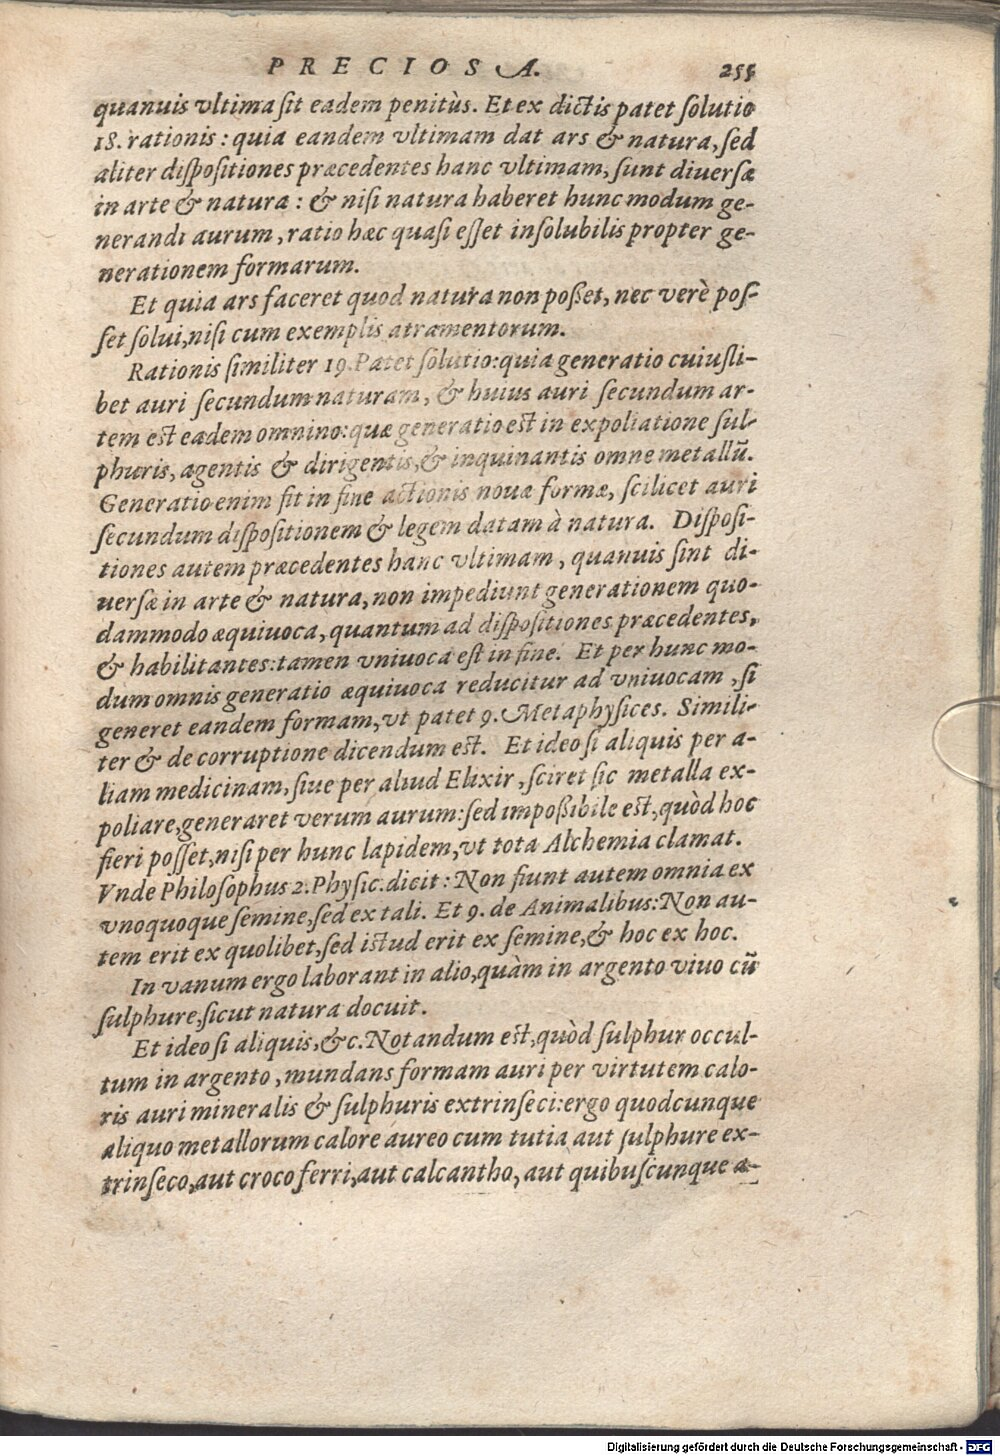 PRECIOSA. 255
quanuis vltima sit eadem penitùs. Et ex dictis patet solutio
18. rationis: quia eandem vltimam dat ars & natura, sed
aliter dispositiones præcedentes hanc vltimam, sunt diuersæ
in arte & natura: & nisi natura haberet hunc modum ge-
nerandi aurum, ratio hæc quasi esset insolubilis propter ge-
nerationem formarum.
Et quia ars faceret quod natura non poßet, nec verè pos-
set solui, nisi cum exemplis atramentorum.
Rationis similiter 19. Patet solutio: quia generatio cuiusli-
bet auri secundum naturam, & huius auri secundum ar-
tem est eadem omnino: quæ generatio est in expoliatione sul-
phuris, agentis & dirigentis, & inquinantis omne metallũ.
Generatio enim fit in fine actionis nouæ formæ, scilicet auri
secundum dispositionem & legem datam à natura. Disposi-
tiones autem præcedentes hanc vltimam, quanuis sint di-
uersæ in arte & natura, non impediunt generationem quo-
dammodo æquiuoca, quantum ad dispositiones præcedentes,
& habilitantes: tamen vniuoca est in fine. Et per hunc mo-
dum omnis generatio æquiuoca reducitur ad vniuocam, si
generet eandem formam, vt patet 9. Metaphysices. Simili-
ter & de corruptione dicendum est. Et ideo si aliquis per a-
liam medicinam, siue per aliud Elixir, sciret sic metalla ex-
poliare, generaret verum aurum: sed impoßibile est, quòd hoc
fieri posset, nisi per hunc lapidem, vt tota Alchemia clamat.
Vnde Philosophus 2. Physic. dicit: Non fiunt autem omnia ex
vnoquoque semine, sed ex tali. Et 9. de Animalibus: Non au-
tem erit ex quolibet, sed istud erit ex semine, & hoc ex hoc.
In vanum ergo laborant in alio, quàm in argento viuo cũ
sulphure, sicut natura docuit.
Et ideo si aliquis, &c. Notandum est, quòd sulphur occul-
tum in argento, mundans formam auri per virtutem calo-
ris auri mineralis & sulphuris extrinseci: ergo quodcunque
aliquo metallorum calore aureo cum tutia aut sulphure ex-
trinseco, aut croco ferri, aut calcantho, aut quibuscunque a-
Digitalisierung gefördert durch die Deutsche Forschungsgemeinschaft - DFG